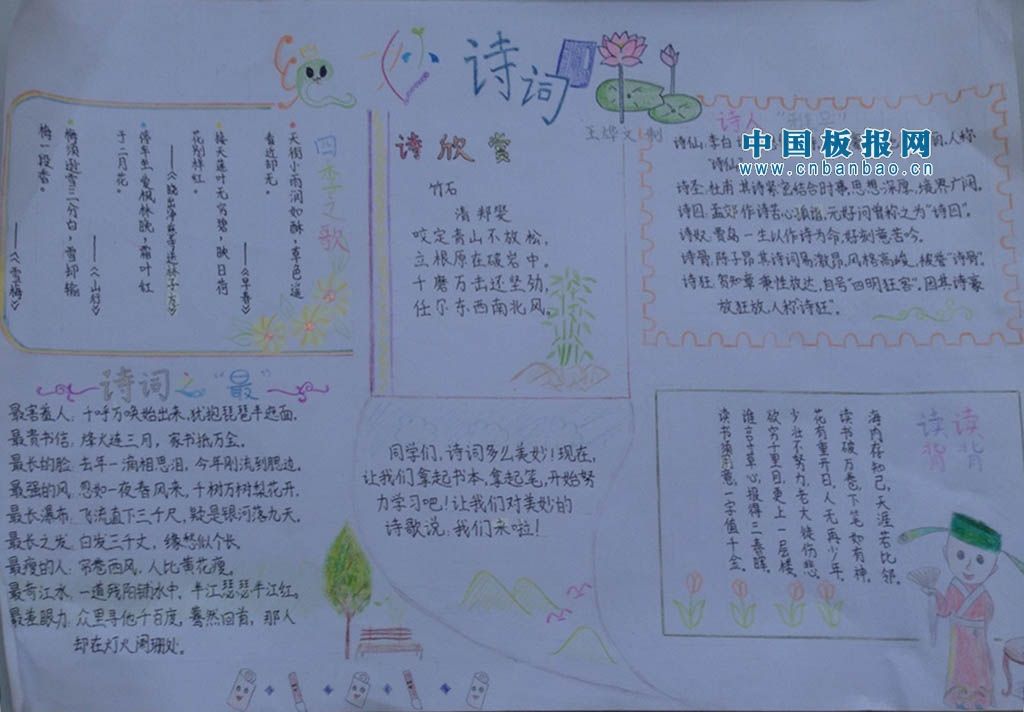 妙诗词
王烨文制
中国板报网
www.cnbanbao.cn
四季之歌
天街小雨润如酥,草色遥
看近却无。
——《早春》
接天莲叶无穷碧,映日荷
花别样红。
——《晓出净慈寺送林子方》
停车坐爱枫林晚,霜叶红
于二月花。
——《山行》
梅须逊雪三分白,雪却输
梅一段香。
——《雪梅》
诗欣赏
竹石
清 郑燮
咬定青山不放松,
立根原在破岩中。
千磨万击还坚劲,
任尔东西南北风。
诗人
诗仙,李白
人称
"诗仙"
诗圣:杜甫,其诗紧密结合时事,思想深厚,境界广阔。
诗囚:孟郊,作诗苦心孤诣,元好问曾称之为"诗囚"。
诗奴:贾岛一生以作诗为命,好刻意苦吟。
诗骨:陈子昂其诗词易激昂,风格高峻,被誉"诗骨"。
诗狂:贺知章秉性放达,自号"四明狂客"。因其诗豪
放狂放,人称诗狂"。
诗词之"最"
最害羞人:千呼万唤始出来,犹抱琵琶半遮面。
最贵书信:烽火连三月,家书抵万金。
最长的脸:去年一滴相思泪,今年刚流到腮边。
最强的风:忽如一夜春风来,千树万树梨花开。
最长瀑布:飞流直下三千尺,疑是银河落九天。
最长之发:白发三千丈,缘愁似个长。
最瘦的人:帘卷西风,人比黄花瘦。
最奇江水:一道残阳铺水中,半江瑟瑟半江红。
最差眼力:众里寻他千百度,蓦然回首,那人
却在灯火阑珊处。
同学们,诗词多么美妙!现在,
让我们拿起书本,拿起笔,开始努
力学习吧!让我们对美妙的
诗歌说:我们来啦!
读读
背背
海内存知己,天涯若比邻。
读书破万卷,下笔如有神。
花有重开日,人无再少年。
少壮不努力,老大徒伤悲。
欲穷千里目,更上一层楼。
谁言寸草心,报得三春晖。
读书须用意,一字值千金。